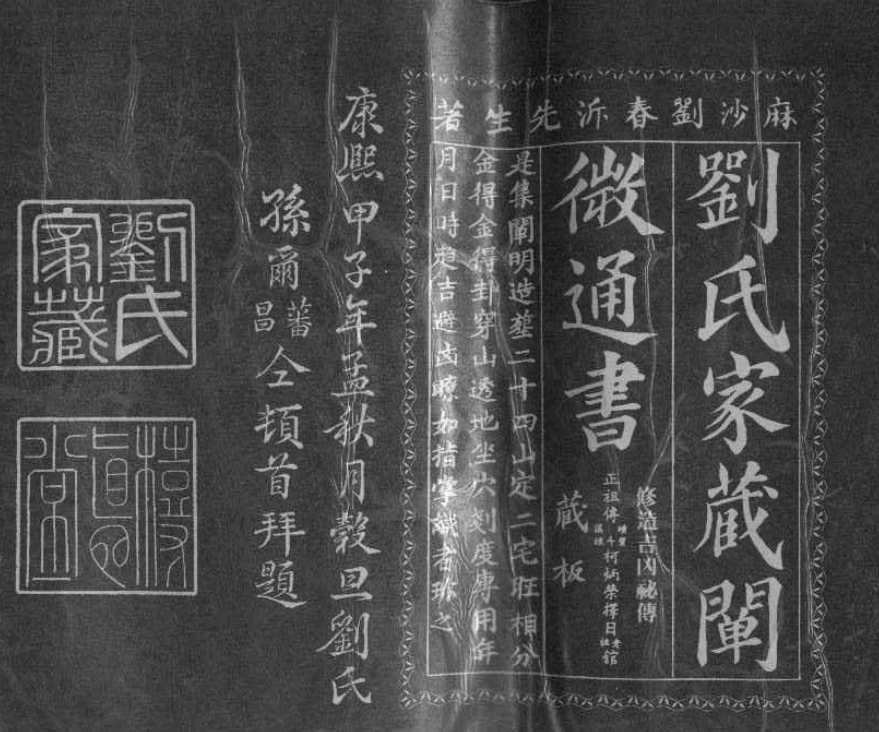 麻沙劉春沂先生著
劉氏家藏闡
微通書
修造吉凶祕傳
正祖傳
柯炳榮擇日館
藏板
是集闡明造塟二十四山定二宅旺相分
金得金得卦穿山透地坐穴刻度專用年
月日時趋吉避凶暸如指掌識者珍之
康熙甲子年孟秋月穀旦劉氏
孫爾蕃昌仝頓首拜題
劉氏家藏